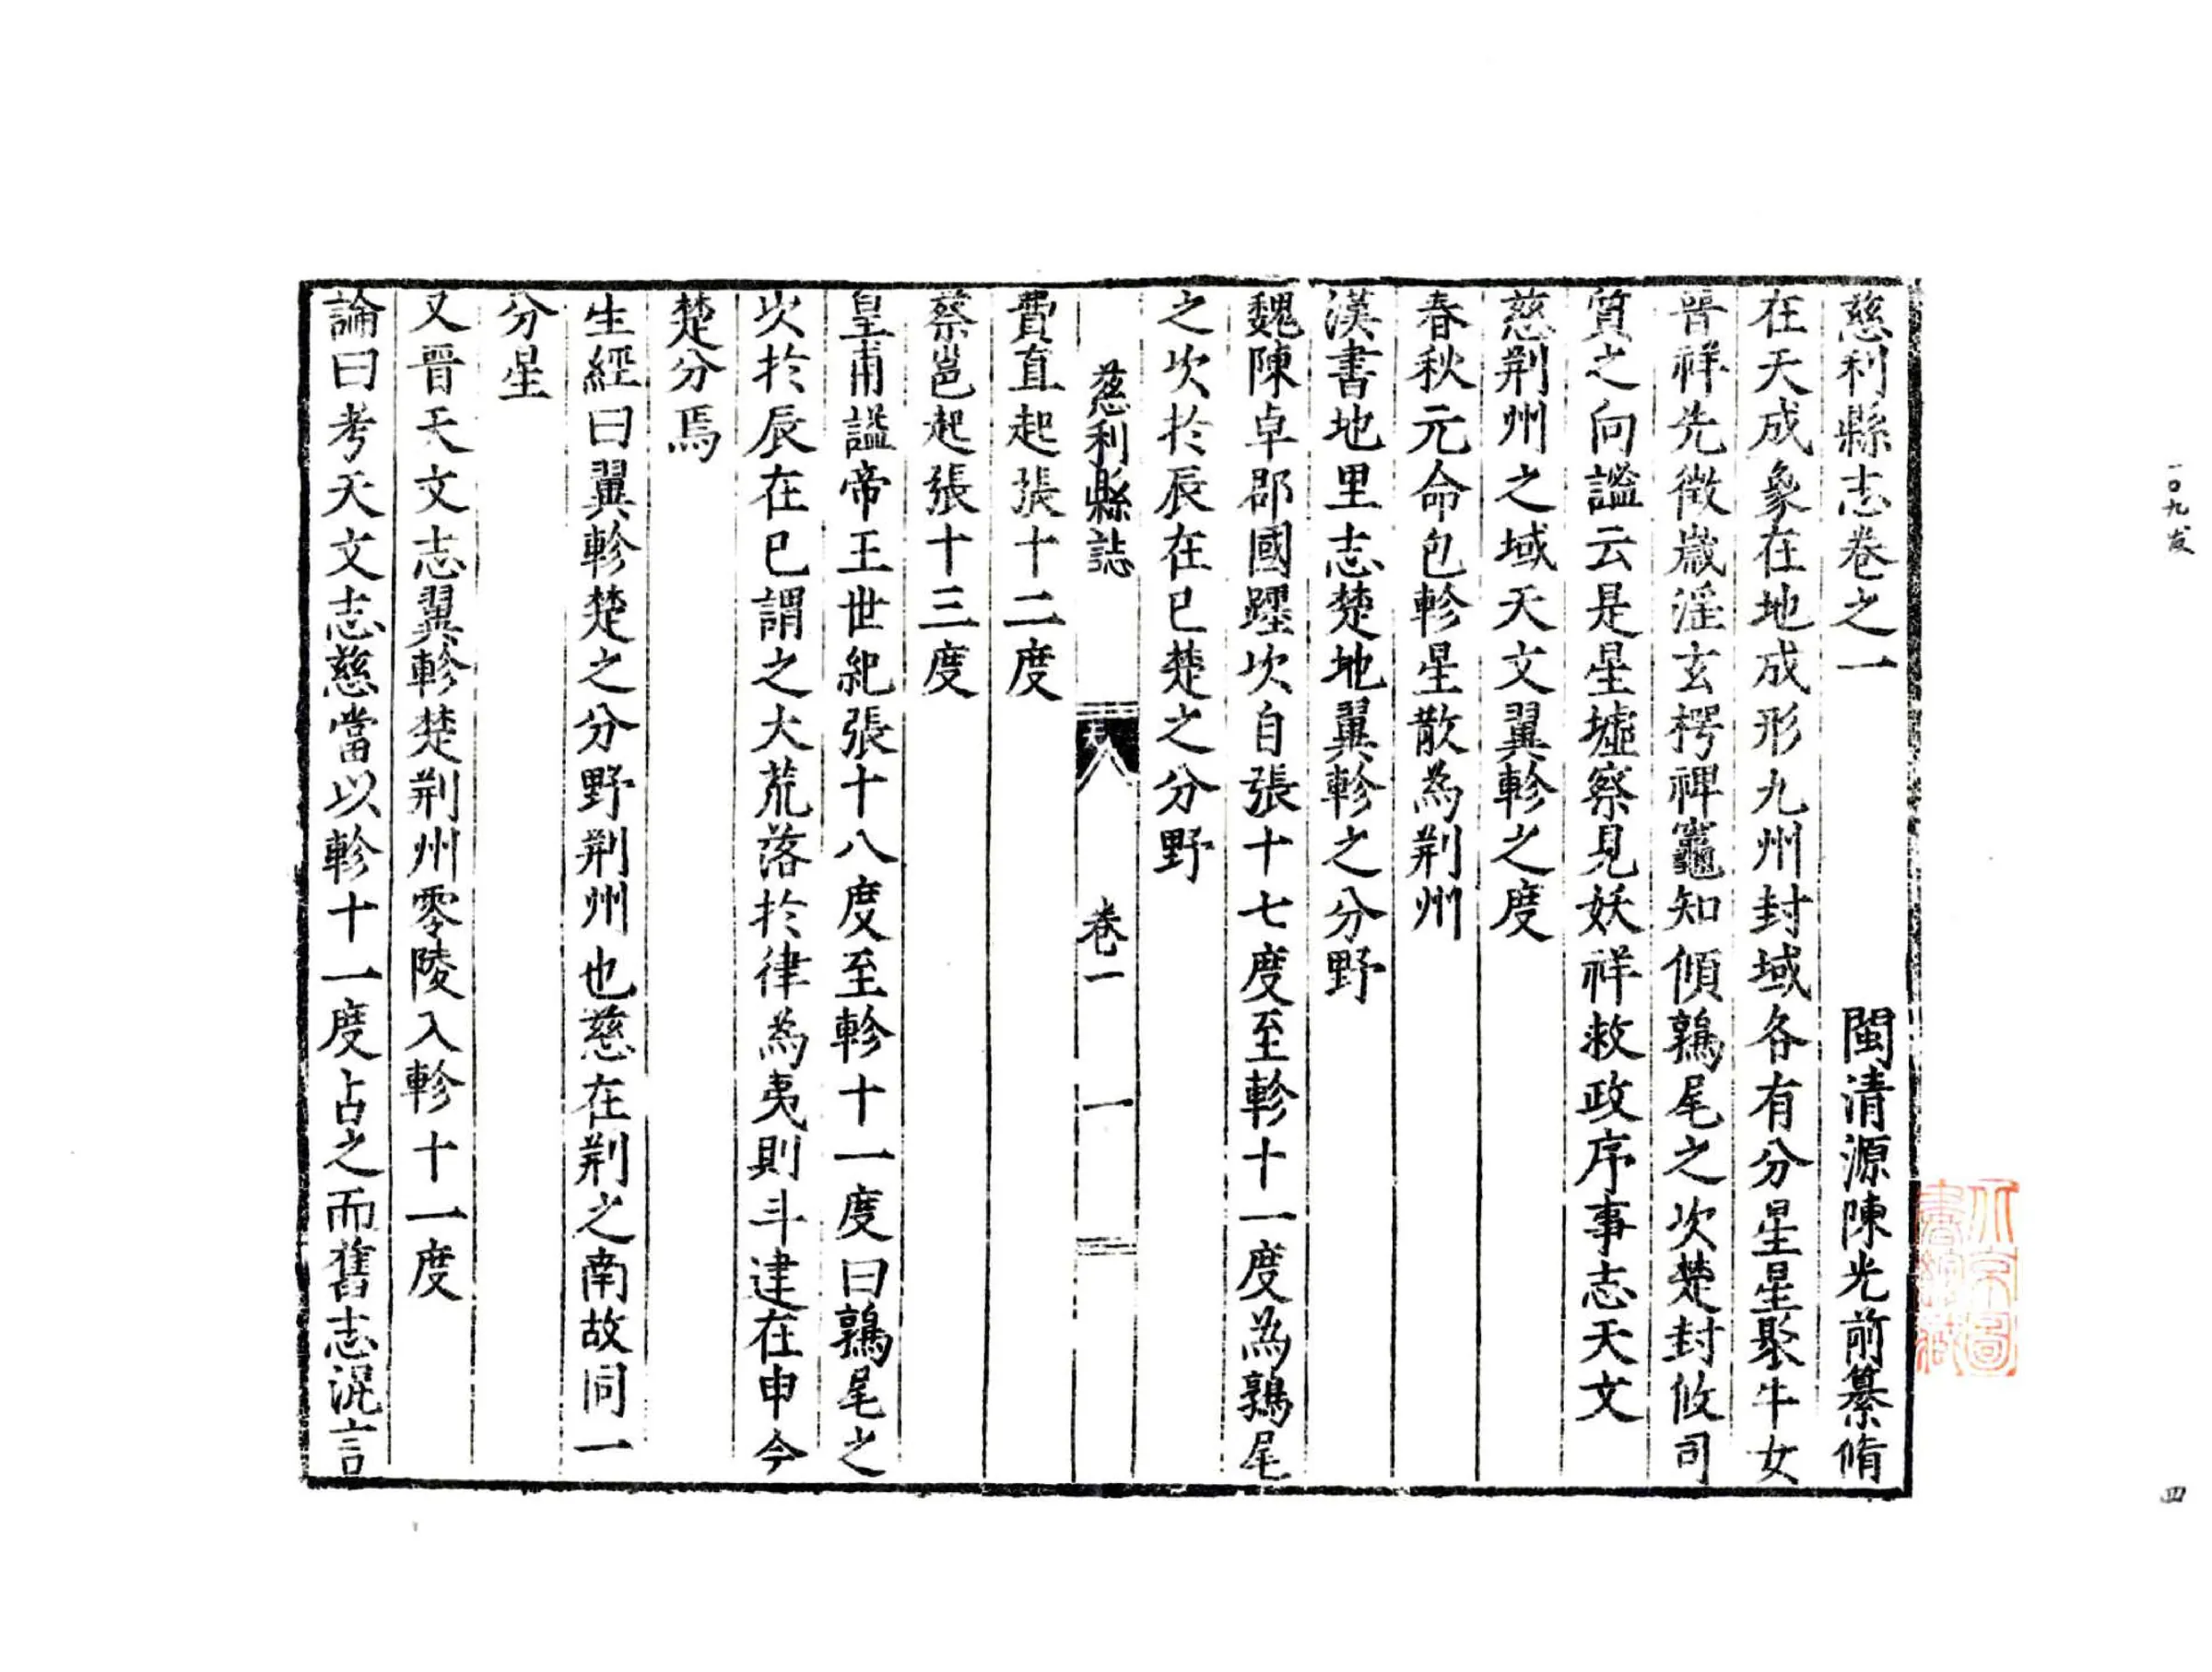 慈利縣志卷之一
閩清源陳光前纂脩
在天成象在地成形九州封域各有分星星聚牛女
晉祥先徵歲淫玄枵禆竈知傾鶉尾之次楚封攸司
質之向謐云是星墟察見妖祥救政序事志天文
慈荆州之域天文翼軫之度
春秋元命包軫星散為荆州
漢書地里志楚地翼軫之分野
魏陳卓郡國躔次自張十七度至軫十一度為鶉尾
之次於辰在巳楚之分野
慈利縣誌
卷一
一
費直起張十二度
蔡邕起張十三度
皇甫謐帝王世紀張十八度至軫十一度曰鶉尾之
次於辰在巳謂之大荒落於律為夷則斗建在申今
楚分焉
生經曰翼軫楚之分野荆州也慈在荆之南故同一
分星
又晉天文志翼軫楚荆州零陵入軫十一度
論曰考天文志慈當以軫十一度占之而舊志混言
一〇九发
四